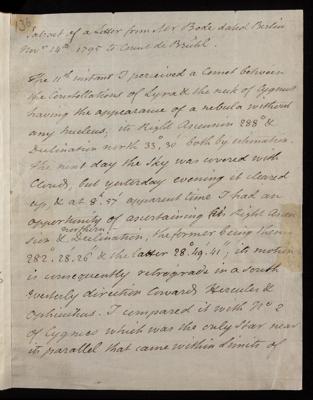 136
Extract of a Letter from Mr Bode dated Berlin
Novr 14th 1795 to Count de Brühl.
The 11th instant I perceived a Comet between
the Constellations of Lyra & the neck of Cygnus
having the appearance of a nebula without
any nucleus, its Right Ascension 288° &
Declination north 33°,30' both by estimation.
The next day the sky was covered with
Clouds, but yesterday evening it cleared
up, & at 8h 57' apparent time I had an
opportunity of ascertaining its Right Ascen
sion & northern Declination, the former being then
282°.28'.26" & the latter 28°.49'.41"; its motion
is consequently retrograde in a South
Westerly direction towards Hercules &
Ophiuchus. I compared it with No 2
of Cygnus which was the only star near
its parallel that came within limits of